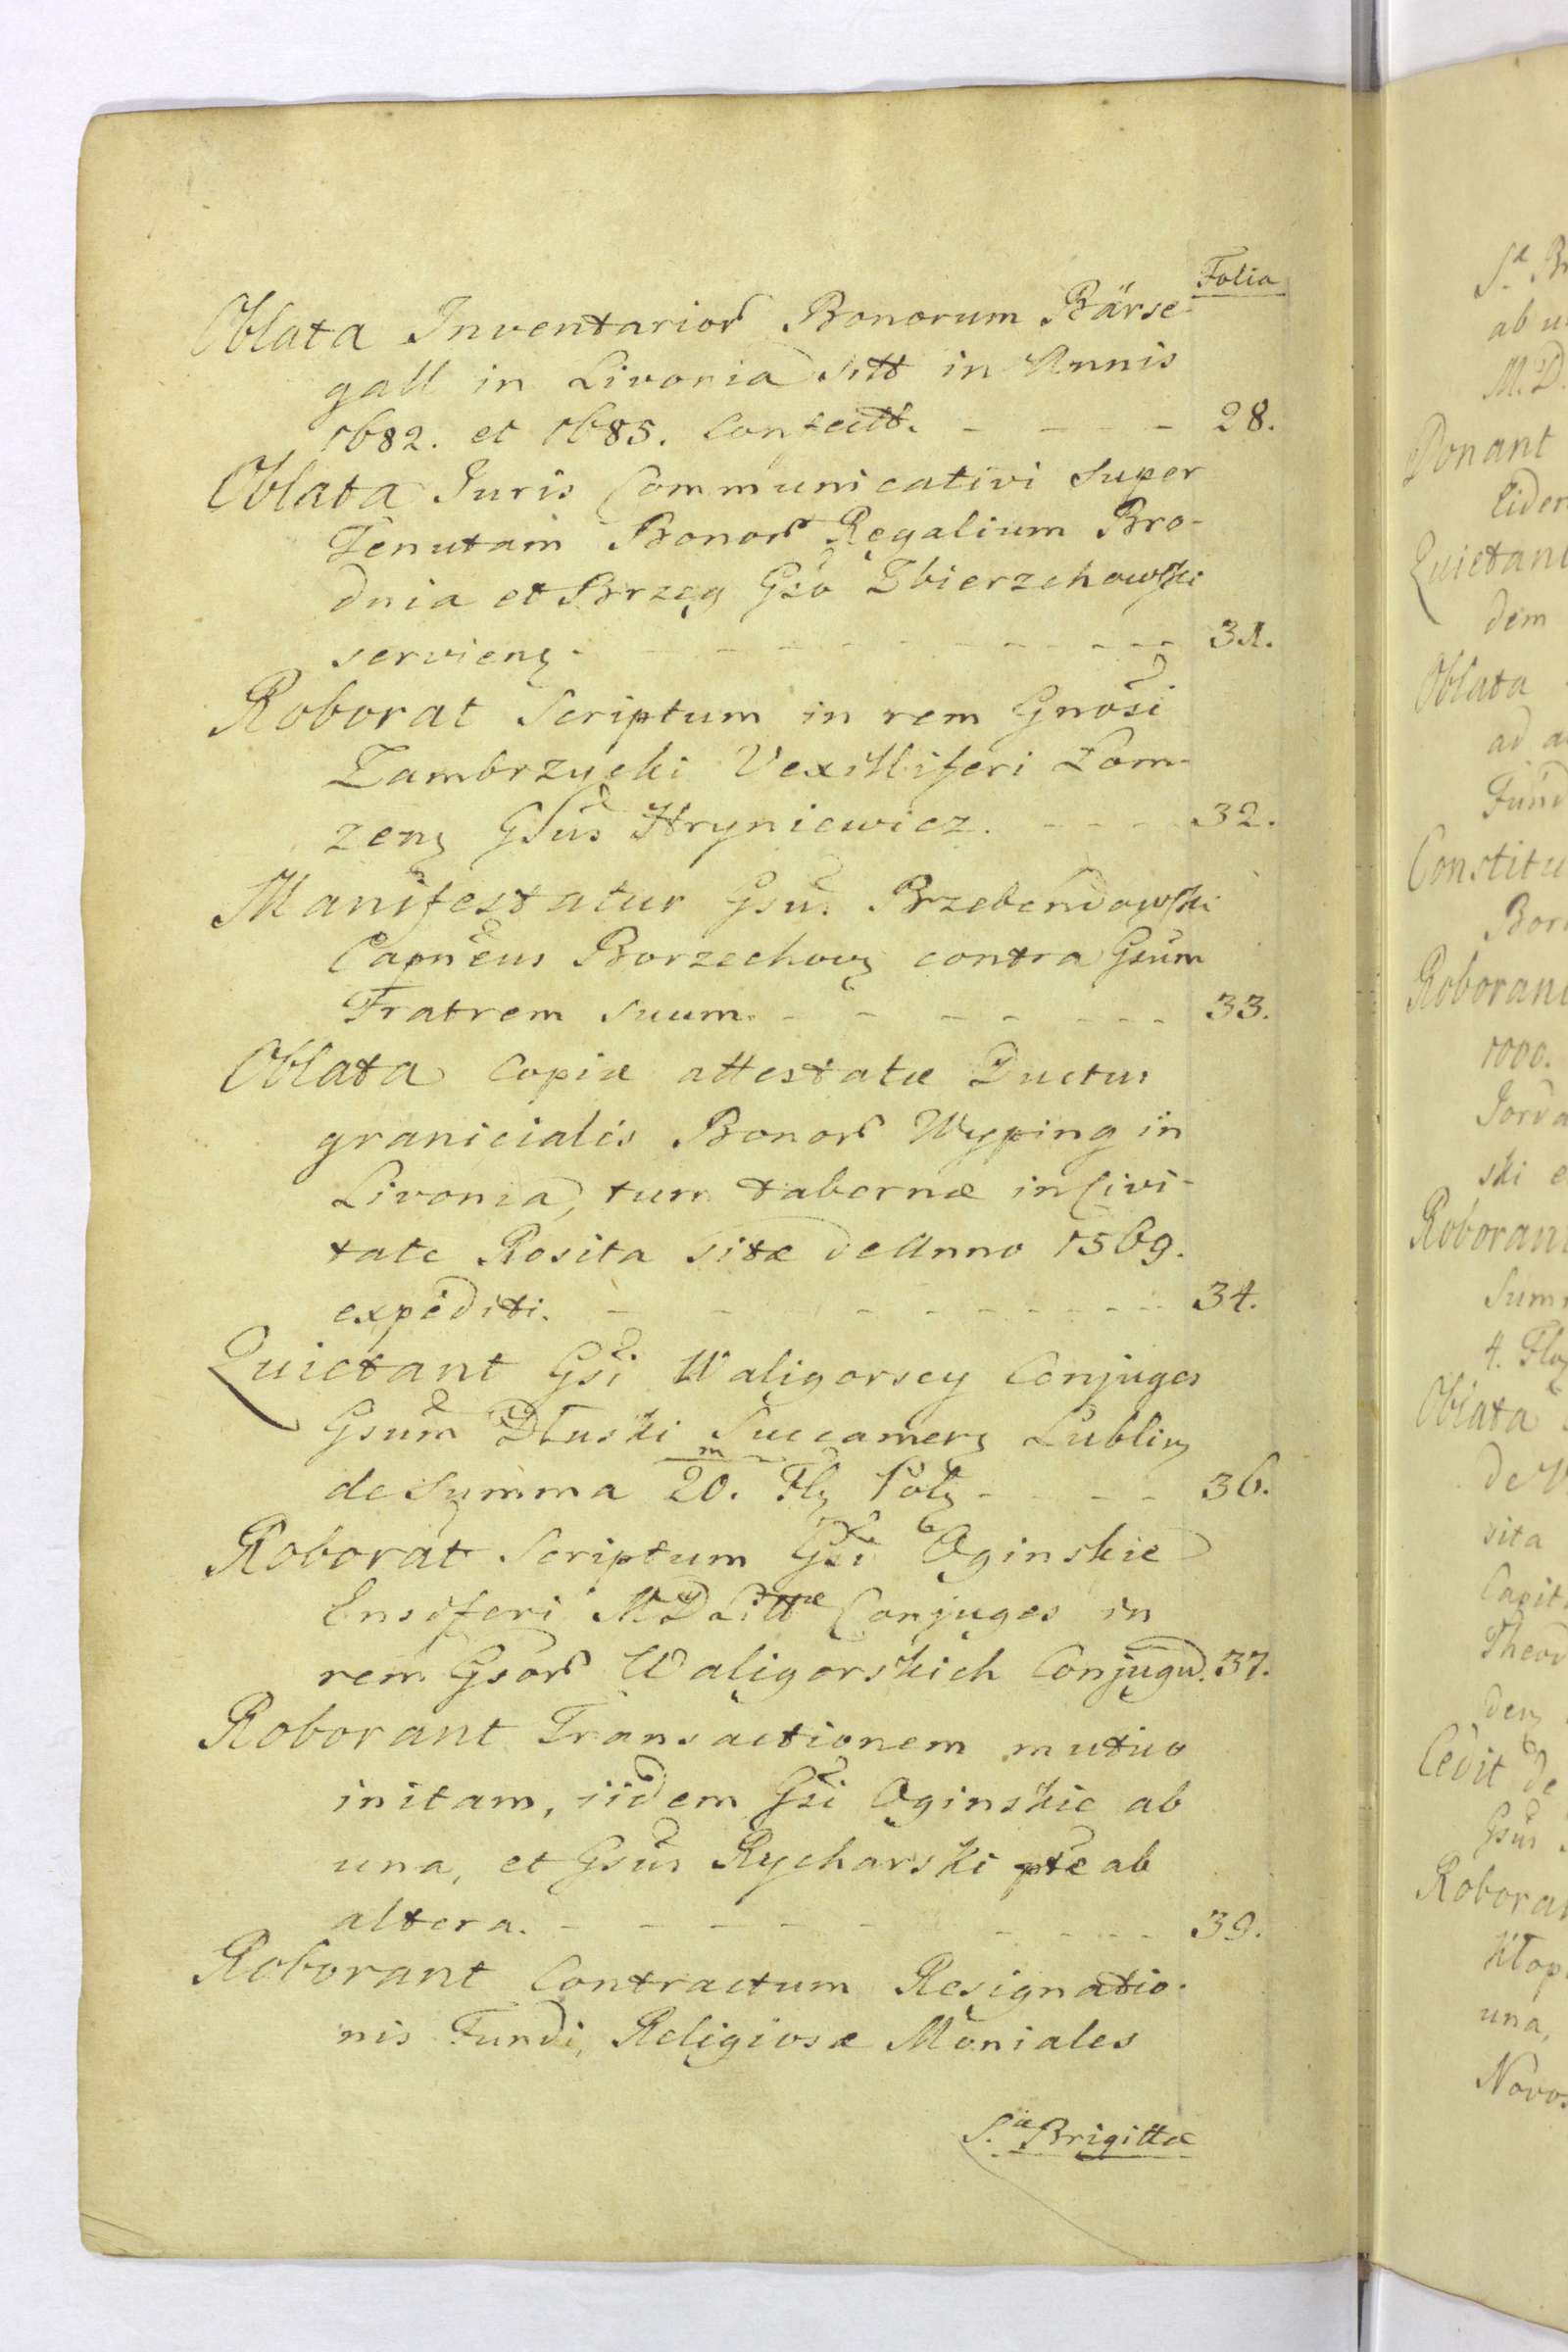 Folia
Oblata Inventarior Bonorum Bärse-
gall in Livonia sitt in Annis
1682. et 1685. Confectt. - - - - 28.
Oblata Juris Communicativi super
Tenutam Bonor Regalium Bro-
dnia et Brzeg Gso Zbierzchowski
serviens. - - - - - - - - - 31.
Roborat Scriptum in rem Gnosi
Zambrzycki Vexilliferi Łom-
zens Gsus Hryniewicz. - - - - 32.
Manifestatur Gsus Brzebendowski
Capneus Borzechovs contra Gsum
Fratrem suum. - - - - - - - 33.
Oblata Copiæ attestatæ Ductus
granicialis Bonor Wyping in
Livonia, tum tabernæ in Civi-
tate Rosita sitæ de Anno 1569.
expediti. - - - - - - - - - - 34.
Quietant Gsi Waligorscy Conjuges
Gsum Dłuski Succamers Lublins
de Summa 20. m Fls Pols - - - - 36.
Roborat Scriptum Gsi Oginskie
Ensiferi MDLittæ Conjuges in
rem Gsor Waligorskich Conjugu. 37.
Roborant Transactionem mutuo
initam, iidem Gsi Oginskie ab
una, et Gsus Rycharski pte ab
altera. - - - - - - - - - 39.
Roborant Contractum Resignatio-
nis Fundi, Religiosæ Moniales
S.æ Brigittæ
S.æ Br
ab u
M.D.
Donant
lider
Quietant
dem
Oblata
ad a
Fund
Constitu
Bor
Roborant
1000.
Jorda
ski e
Roborant
Summ
4. Fls
Oblata
de
sita
Capit
Theod
dens
Cedit de
Gsus
Roborar
Kłop
una,
Novo